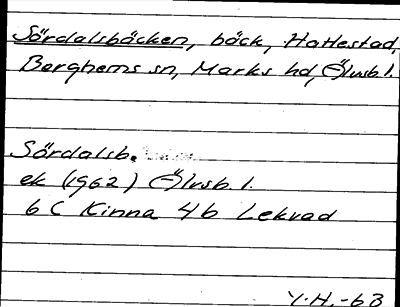 Sördalsbäcken, bäck, Hattestad,
Berghems sn, Marks hd, Älvsb l.
Sördalsb.
ek (1962) Älvsb l.
6 C Kinna 4b Lekvad
Y.H.-63